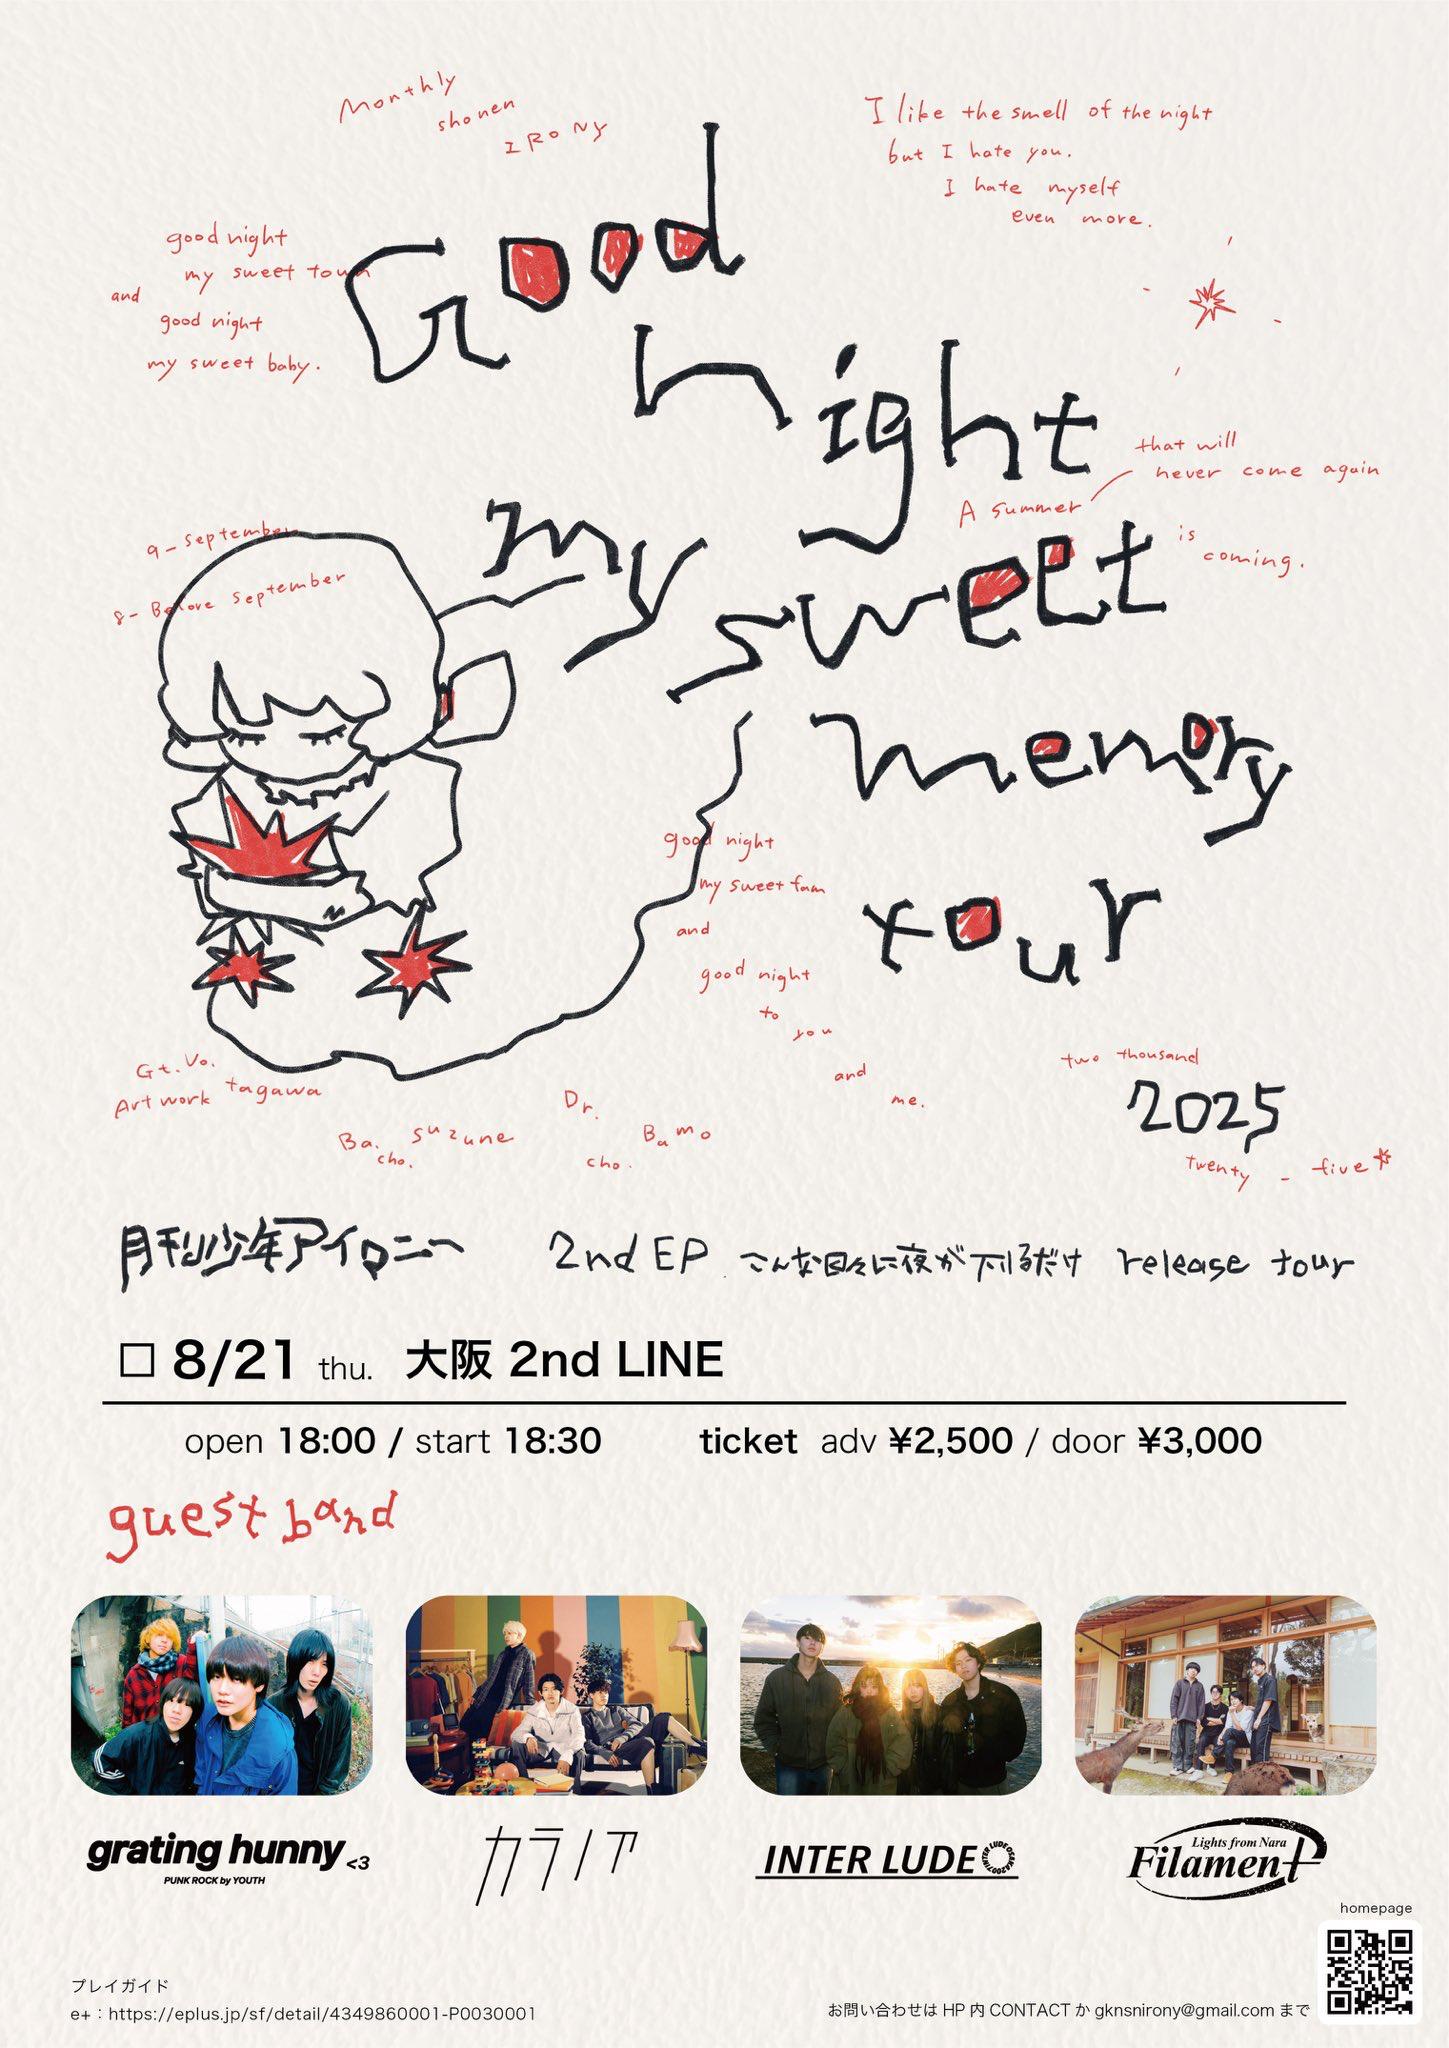 Monthly
shonen
IRONY
I like the smell of the night
but I hate you.
I hate myself
even more.
good night
my sweet town
and
good night
my sweet baby.
Good
night
my
sweet
memory
tour
that will
never come again
A summer
is
coming.
9 - September
8 - Before September
good night
my sweet fam
and
good night
to
you
and
me.
Gt. Vo.
Art work tagawa
Ba. suzune
cho.
Dr. Bamo
cho.
two thousand
2025
twenty - five
月刊少年アイロニー 2nd EP こんな日々に夜が下りるだけ release tour
□ 8/21 thu. 大阪 2nd LINE
open 18:00 / start 18:30 ticket adv ¥2,500 / door ¥3,000
guest band
grating hunny <3
PUNK ROCK by YOUTH
カラノア
INTER LUDE
Lights from Nara
Filament
homepage
プレイガイド
e+：https://eplus.jp/sf/detail/4349860001-P0030001
お問い合わせは HP 内 CONTACT か gknsnirony@gmail.com まで